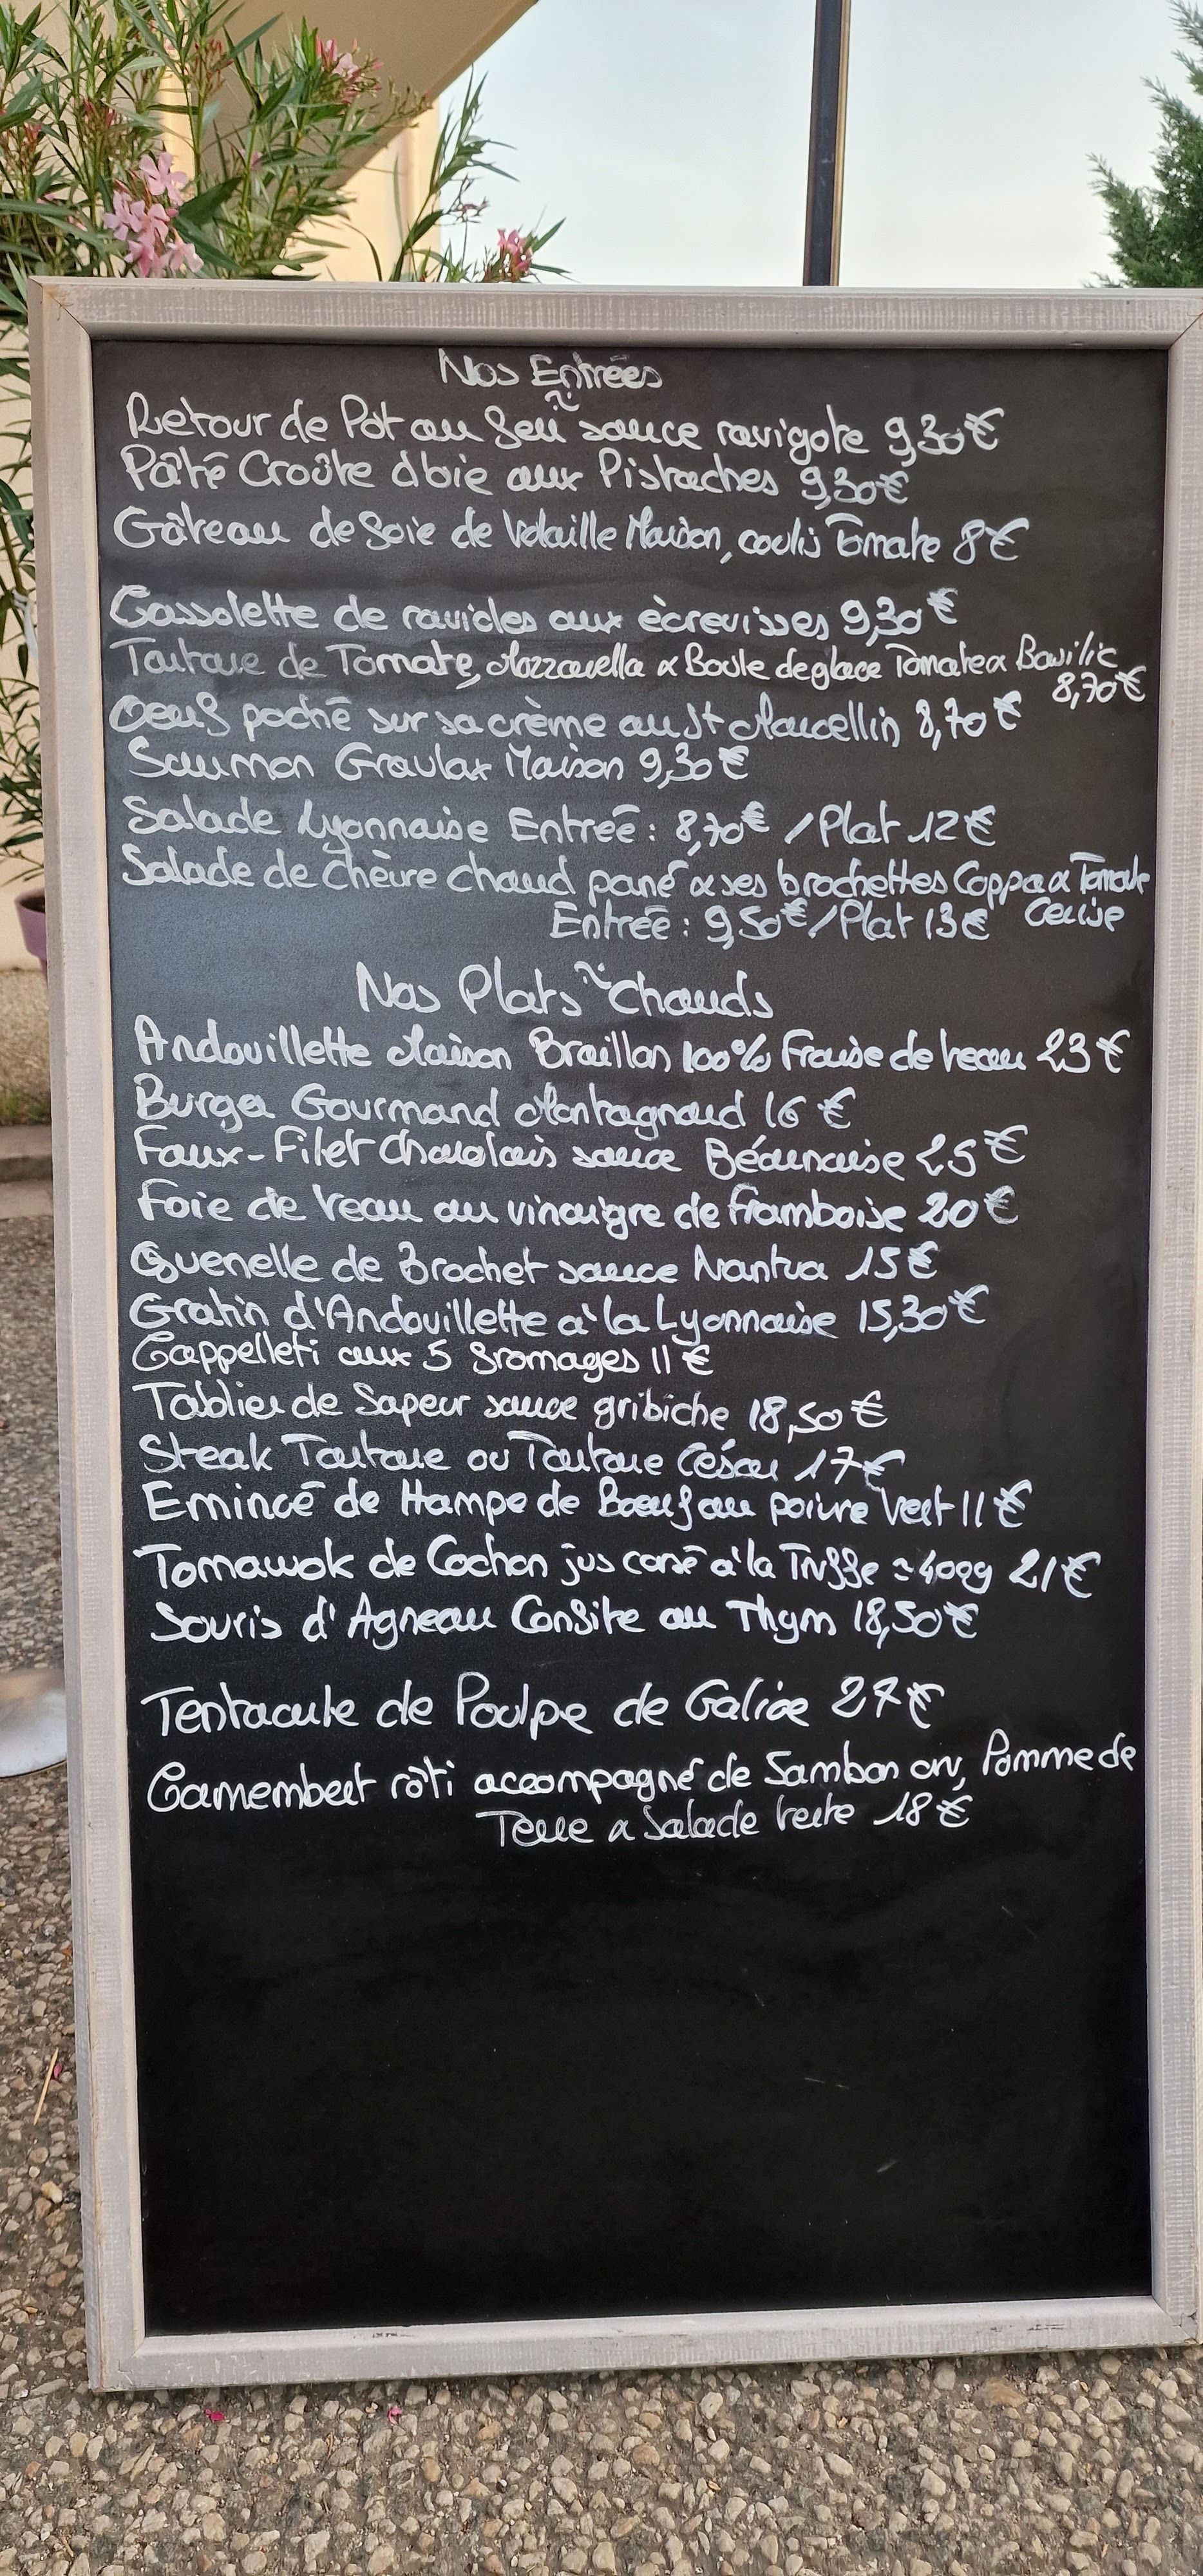 Nos Entrées
Retour de Pot au feu sauce ravigote 9,30€
Pâté Croûte d'oie aux Pistaches 9,30€
Gâteau de foie de Volaille Maison, coulis Tomate 8€
Cassolette de ravioles aux écrevisses 9,30€
Tartare de Tomate, Mozzarella & Boule de glace Tomate & Basilic
8,70€
Oeuf poché sur sa crème au St Marcellin 8,70€
Saumon Gravlax Maison 9,30€
Salade Lyonnaise Entrée : 8,70€ / Plat 12€
Salade de Chèvre chaud pané & ses brochettes Coppa & Tomate
Entrée : 9,50€ / Plat 13€ Cerise
Nos Plats Chauds
Andouillette Maison Braillon 100% Fraise de veau 23€
Burger Gourmand Montagnard 16€
Faux-Filet Charolais sauce Béarnaise 25€
Foie de veau au vinaigre de framboise 20€
Quenelle de Brochet sauce Nantua 15€
Gratin d'Andouillette à la Lyonnaise 15,30€
Cappelleti aux 5 fromages 11€
Tablier de Sapeur sauce gribiche 18,50€
Steak Tartare ou Tartare César 17€
Emincé de Hampe de Bœuf au poivre Vert 11€
Tomawok de Cochon jus corsé à la Truffe ≈ 400g 21€
Souris d'Agneau Confite au Thym 18,50€
Tentacule de Poulpe de Galice 27€
Camembert rôti accompagné de Jambon cru, Pomme de
Terre & Salade verte 18€